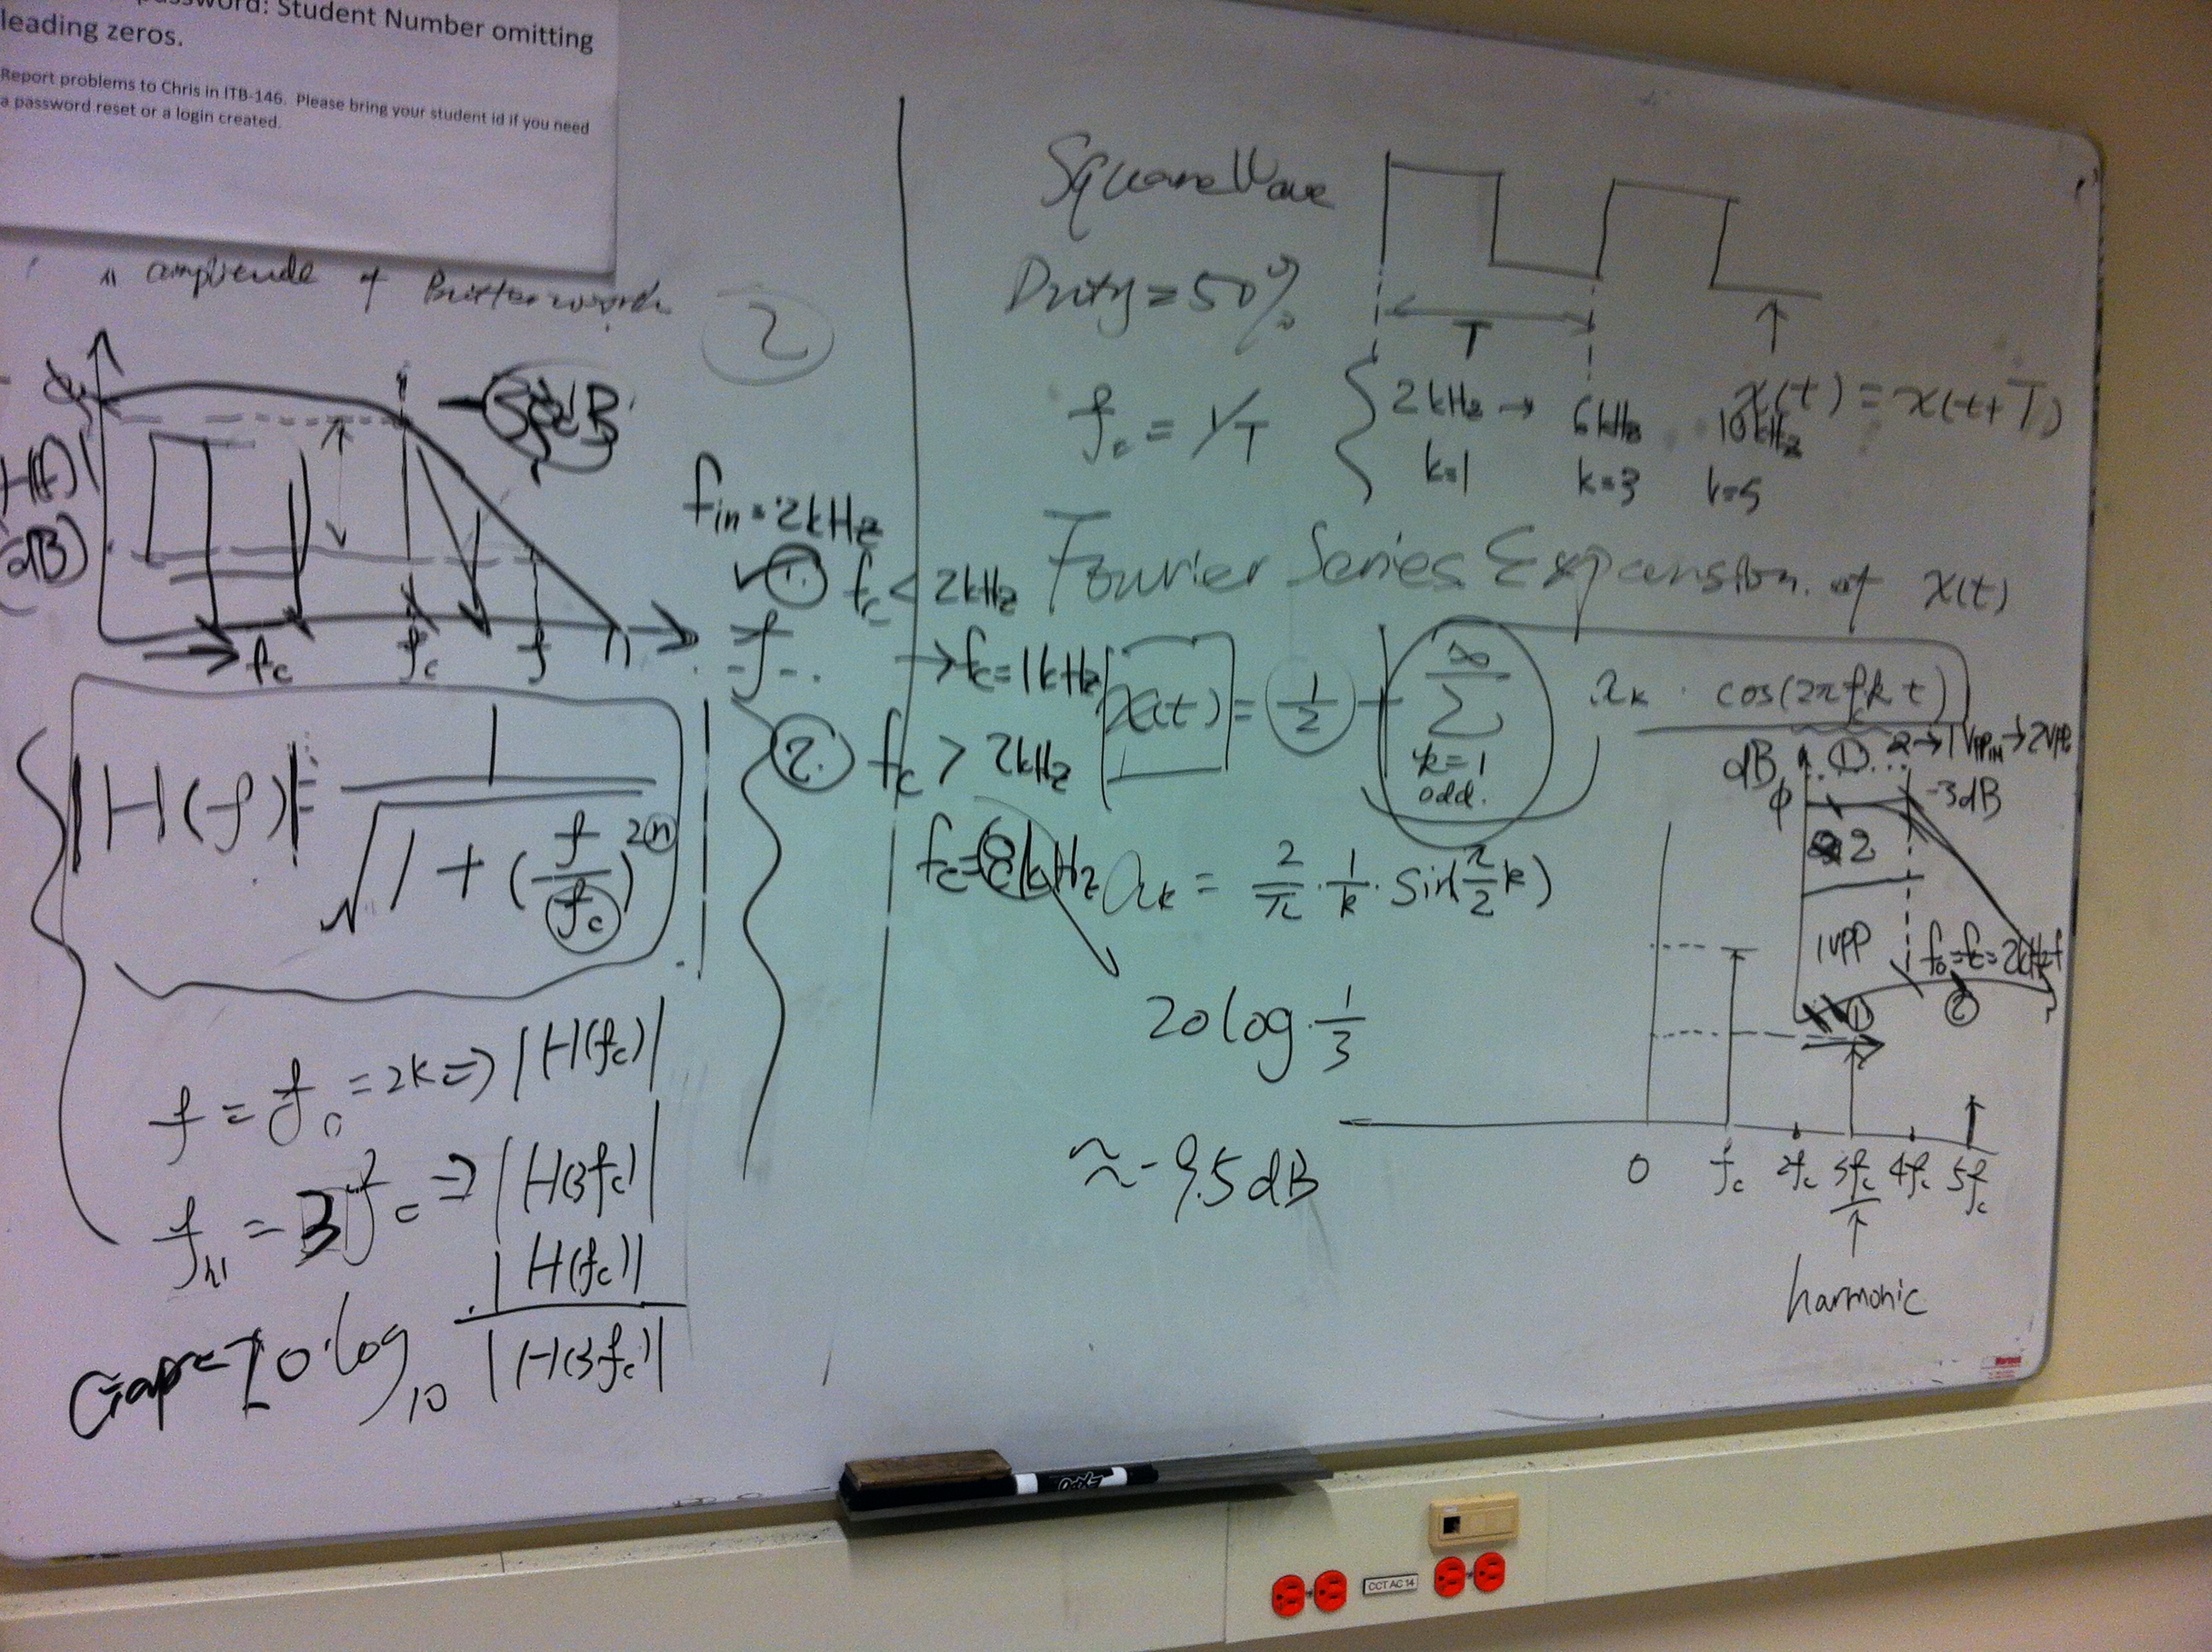 password: Student Number omitting
leading zeros.
Report problems to Chris in ITB-146. Please bring your student id if you need
a password reset or a login created.
of Butterworth
2
(dB)
fc
fc
f
|H(f)| = 1 / √(1 + (f/fc)^2n)
f = fc = 2k ⇒ |H(fc)|
fh1 = 3fc ⇒ |H(3fc)|
Gap = 20·log10 |H(fc)| / |H(3fc)|
fin = 2kHz
① fc < 2kHz
→ fc = 1kHz
② fc > 2kHz
fc = 8kHz
Square Wave
Duty = 50%
T
fc = 1/T
2kHz → 6kHz 10kHz
k=1 k=3 k=5
x(t) = x(t+T)
Fourier Series Expansion of x(t)
x(t) = 1/2 + ∑ k=1 odd. ∞ ak · cos(2πfckt)
ak = 2/π · 1/k · sin(π/2 k)
20 log 1/3
≈ -9.5 dB
dB ① 2 → 1VPPIN → 2VPP
-3dB
2
1VPP
f0 = fc = 2kHz f
① ②
0 fc 2fc 3fc 4fc 5fc
harmonic
CCT AC 14